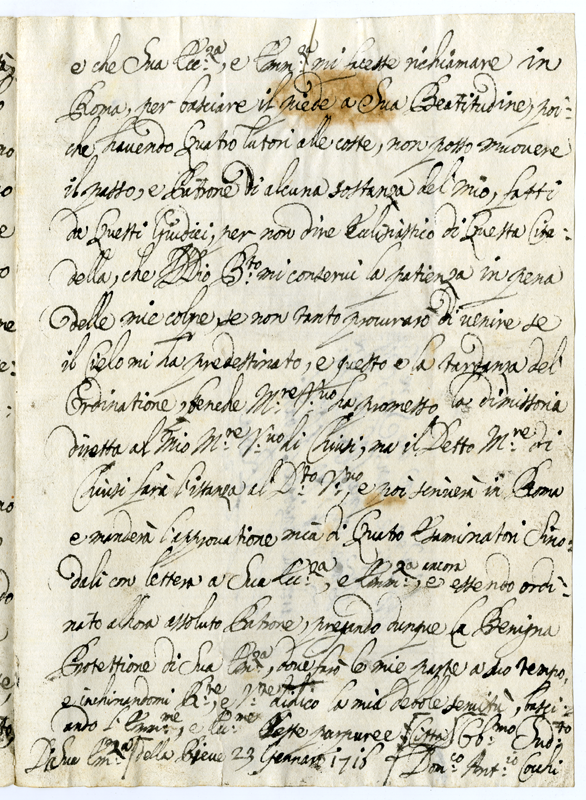 e che Sua Ecc.za, e Emm.za mi facesse richiamare in
Roma, per basciare il piede a Sua Beatitudine, poi=
che havendo Quatro Tutori alle coste, non posso muovere
il passo, e Patrone di alcuna sostanza del mio, fatti
da Questi Giudici, per non dire Ecclesiastico di Questa Citta=
della, che Iddio B.to mi conservi la patienza in pena
delle mie colpe, se non tanto procurarò di venire se
il Cielo mi ha predestinato, e questo e la tardanza del
Ordinatione, benche M.re ha promesso la dimissoria
diretta al Mio M.re V.vo di Chiusi, ma il Detto M.re di
Chiusi farà l'istanza al D.to V.vo, e poi scriverà in Roma
e manderà l'approvatione mia di Quatro Esaminatori Sino=
dali con lettera a Sua Ecc.za, e Emm.za, e ancora essendo ordi=
nato allora assoluto Patrone, pregando dunque la Benigna
Protettione di Sua Em.za, dove farò le mie parte a suo tempo,
e inchinandomi R.te, e dedico la mia debole servitù, basci=
ando l' Emm.me, e Ecc.me Veste purpuree
Di Sua Em.za Città della Pieve 23 Gennaro 1716 Dom.co Ant.io